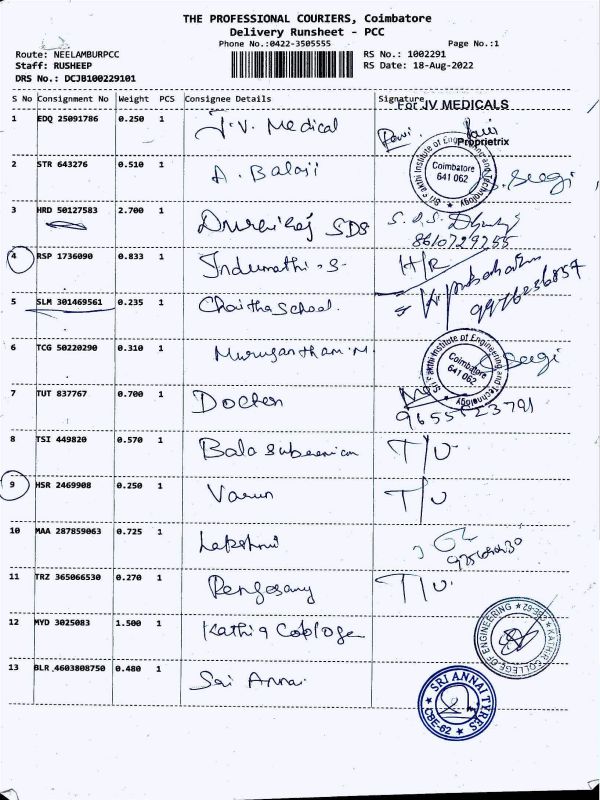 THE PROFESSIONAL COURIERS, Coimbatore
Delivery Runsheet - PCC
Phone No.:0422-3505555 Page No.:1
Route: NEELAMBURPCC RS No.: 1002291
Staff: RUSHEEP RS Date: 18-Aug-2022
DRS No.: DCJB100229101
S No Consignment No Weight PCS Consignee Details Signature
For JV MEDICALS
1 EDQ 25091786 0.250 1 J.V. Medical
Proprietrix
2 STR 643276 0.510 1 A. Balaji
Coimbatore 641 062
3 HRD 50127583 2.700 1 SDS
8610729255
4 RSP 1736090 0.833 1 Indumathi.S. H/R
9976236857
5 SLM 301469561 0.235 1 Chaitha School.
6 TCG 50220290 0.310 1 Murugantham.M.
Sri Sakthi Institute of Engineering and Technology
Coimbatore 641 062
7 TUT 837767 0.700 1 Docter
9655123791
8 TSI 449820 0.570 1 T/U
9 HSR 2469908 0.250 1 Varun T/U
10 MAA 287859063 0.725 1 Lakshmi
11 TRZ 365066530 0.270 1 T/U.
12 MYD 3025083 1.500 1 Kathir College
KATHIR COLLEGE OF ENGINEERING
13 BLR 4603808750 0.480 1 Sai Annai
SRI ANNAI TYRES
CBE-62